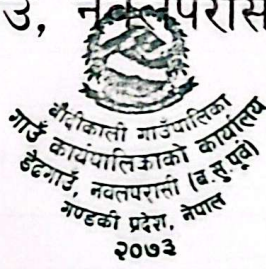 ३, नवलपरासी
बौदीकाली गाउँपालिका
गाउँ कार्यपालिकाको कार्यालय
डेढगाउँ, नवलपरासी (ब.सु.पूर्व)
गण्डकी प्रदेश, नेपाल
२०७३